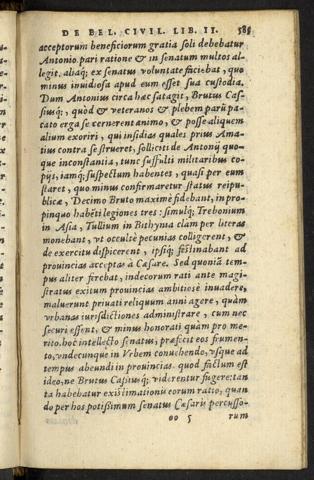 DE BEL. CIVIL. LIB. II. 585
acceptorum beneficiorum gratia soli debebatur
Antonio. pari ratione & in senatum multos al-
legit. aliaq; ex senatus voluntate faciebat, quo
minus inuidiosa apud eum esset sua custodia.
Dum Antonius circa hæc satagit, Brutus Cas-
siusq; quòd & veteranos & plebem parũ pa-
cato erga se cernerent animo, & posse aliquem
alium exoriri, qui insidias quales prius Ama-
tius contra se strueret, solliciti de Antonij quo-
que inconstantia, tunc suffulti militaribus co-
pijs, iamq; suspectum habentes, quasi per eum
staret, quo minus confirmaretur status reipu-
blicæ, Decimo Bruto maximè fidebant, in pro-
pinquo habēti legiones tres: simulq; Trebonium
in Asia, Tullium in Bithynia clàm per literas
monebant, vt occultè pecunias colligerent, &
de exercitu dispicerent, ipsiq; festinabant ad
prouincias acceptas à Cæsare. Sed quoniã tem-
pus aliter ferebat, indecorum rati ante magi-
stratus exitum prouincias ambitiosè inuadere,
maluerunt priuati reliquum anni agere, quàm
vrbanas iurisdictiones administrare, cum nec
securi essent, & minus honorati quàm pro me-
rito. hoc intellecto senatus, præfecit eos frumen-
to, vndecunque in Vrbem conuehendo, vsque ad
tempus abeundi in prouincias. quod factum est
ideo, ne Brutus Caßiusq; viderentur fugere: tan
ta habebatur existimationis eorum ratio, quan
do per hos potißimum senatus Cæsaris percusso-
oo 5 rum